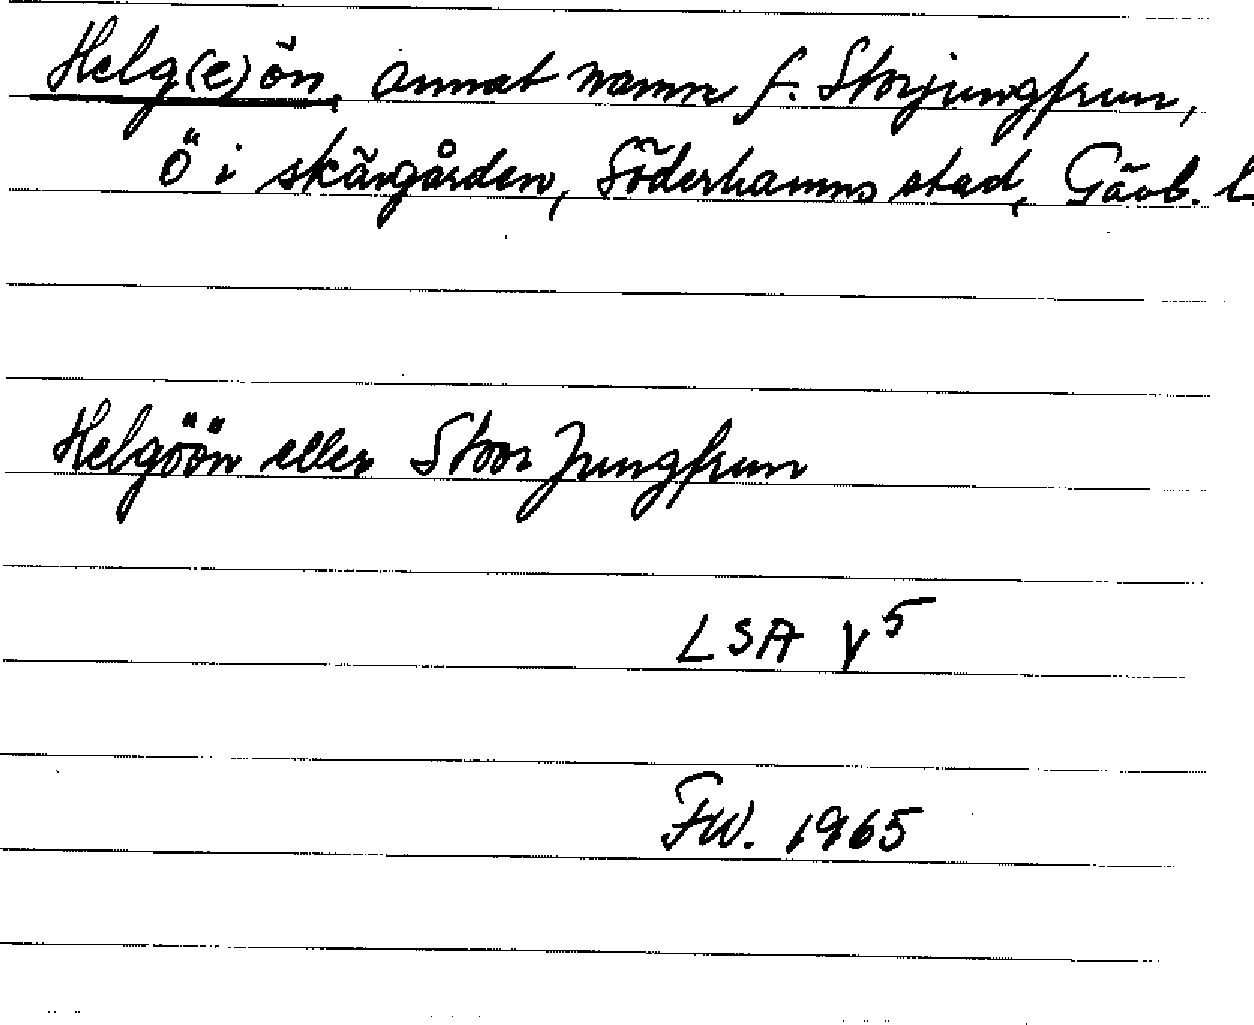 Helg(e)ön, annat namn f. Storjungfrun,
Ö i skärgården, Söderhamns stad, Gävb. l.
Helgöön eller Stoor Jungfrun
LSA V5
FW. 1965